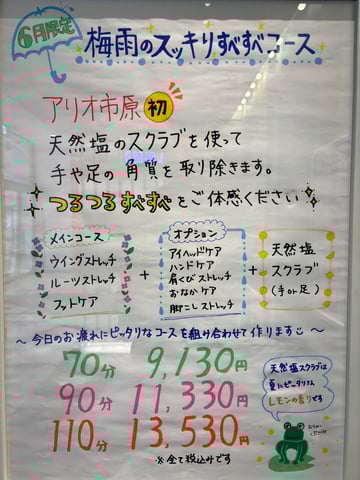 6月限定
梅雨のスッキリすべすべコース
アリオ市原 初
天然塩のスクラブを使って
手や足の角質を取り除きます。
つるつるすべすべをご体感ください
メインコース
ウイングストレッチ
ルーツストレッチ
フットケア
+
オプション
アイヘッドケア
ハンドケア
肩くびストレッチ
おなかケア
脚こしストレッチ
+
天然塩
スクラブ
(手or足)
〜今日のお疲れにピッタリなコースを組み合わせて作ります〜
70分 9,130円
90分 11,330円
110分 13,530円
※全て税込みです
天然塩スクラブは
夏にピッタリな
レモンの香りです